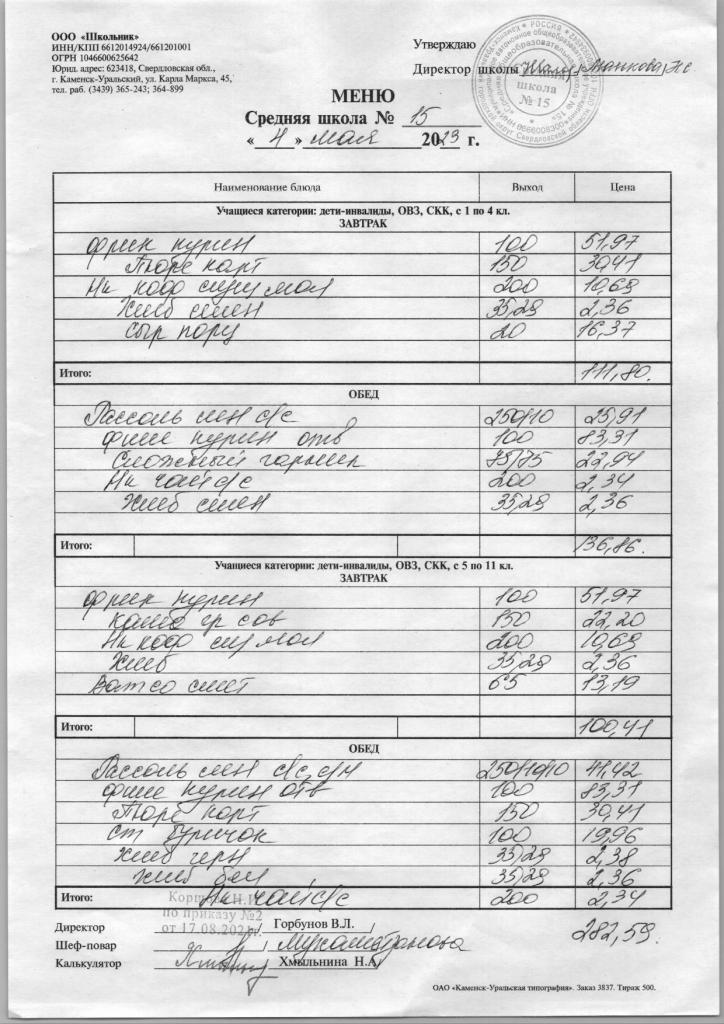 ООО «Школьник»
ИНН/КПП 6612014924/661201001
ОГРН 1046600625642
Юрид. адрес: 623418, Свердловская обл.,
г. Каменск-Уральский, ул. Карла Маркса, 45,
тел. раб. (3439) 365-243; 364-899
Утверждаю
Директор школы
школа
№ 15
МЕНЮ
Средняя школа № 15
« 4 » мая 2023 г.
Наименование блюда Выход Цена
Учащиеся категории: дети-инвалиды, ОВЗ, СКК, с 1 по 4 кл.
ЗАВТРАК
фрик курин 100 51,97
Пюре карт 150 30,41
Нк кофе сгущ мол 200 10,69
Хлеб пшен 35,29 2,36
Сыр порц 20 16,37
Итого: 111,80.
ОБЕД
Рассоль лен с/с 250/10 25,91
филе курин отв 100 83,31
Сложный гарнир 75/75 22,94
Нк чай с/с 200 2,34
Хлеб пшен 35,29 2,36
Итого: 136,86.
Учащиеся категории: дети-инвалиды, ОВЗ, СКК, с 5 по 11 кл.
ЗАВТРАК
фрик курин 100 51,97
Каша гр 150 22,20
Нк кофе сгущ мол 200 10,69
Хлеб 35,29 2,36
65 13,19
Итого: 100,41
ОБЕД
Рассоль лен с/с, с/м 250/10/10 41,42
филе курин отв 100 83,31
Пюре карт 150 30,41
100 19,96
Хлеб черн 35/29 2,38
Хлеб бел 35/29 2,36
Итого: Нк чай с/с 200 2,34
по приказу №2
от 17.08.2021г.
Директор Горбунов В.Л. 282,59.
Шеф-повар
Калькулятор Хмыльнина Н.А.
ОАО «Каменск-Уральская типография». Заказ 3837. Тираж 500.